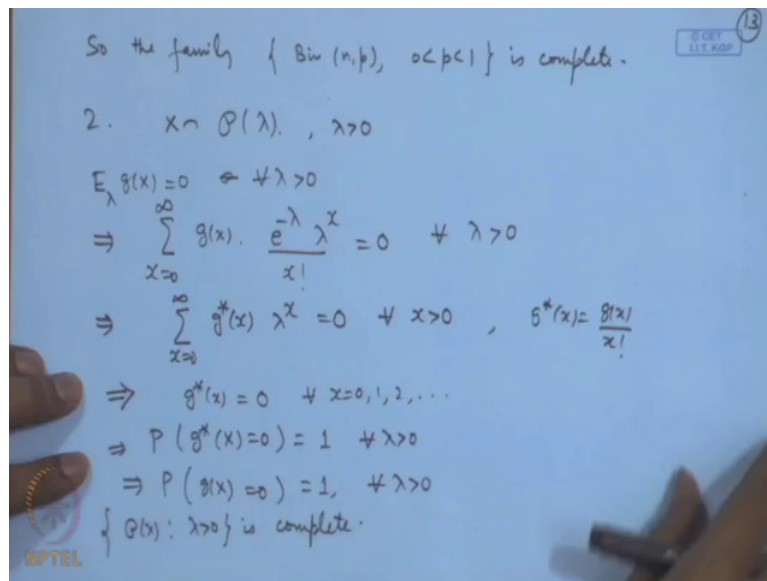 13
© CET
I.I.T. KGP
So the family { Bin (n,p), 0<p<1 } is complete.
2. X ~ P(λ). , λ>0
E_λ g(X) = 0 ∀ λ>0
⇒ ∑_{x=0}^{∞} g(x). e^{-λ} λ^x / x! = 0 ∀ λ>0
⇒ ∑_{x=0}^{∞} g*(x) λ^x = 0 ∀ x>0 , g*(x) = g(x) / x!
⇒ g*(x) = 0 ∀ x=0,1,2,...
⇒ P ( g*(X)=0 ) = 1 ∀ λ>0
⇒ P ( g(X) =0 ) = 1, ∀ λ>0
{ P(λ) : λ>0 } is complete.
NPTEL